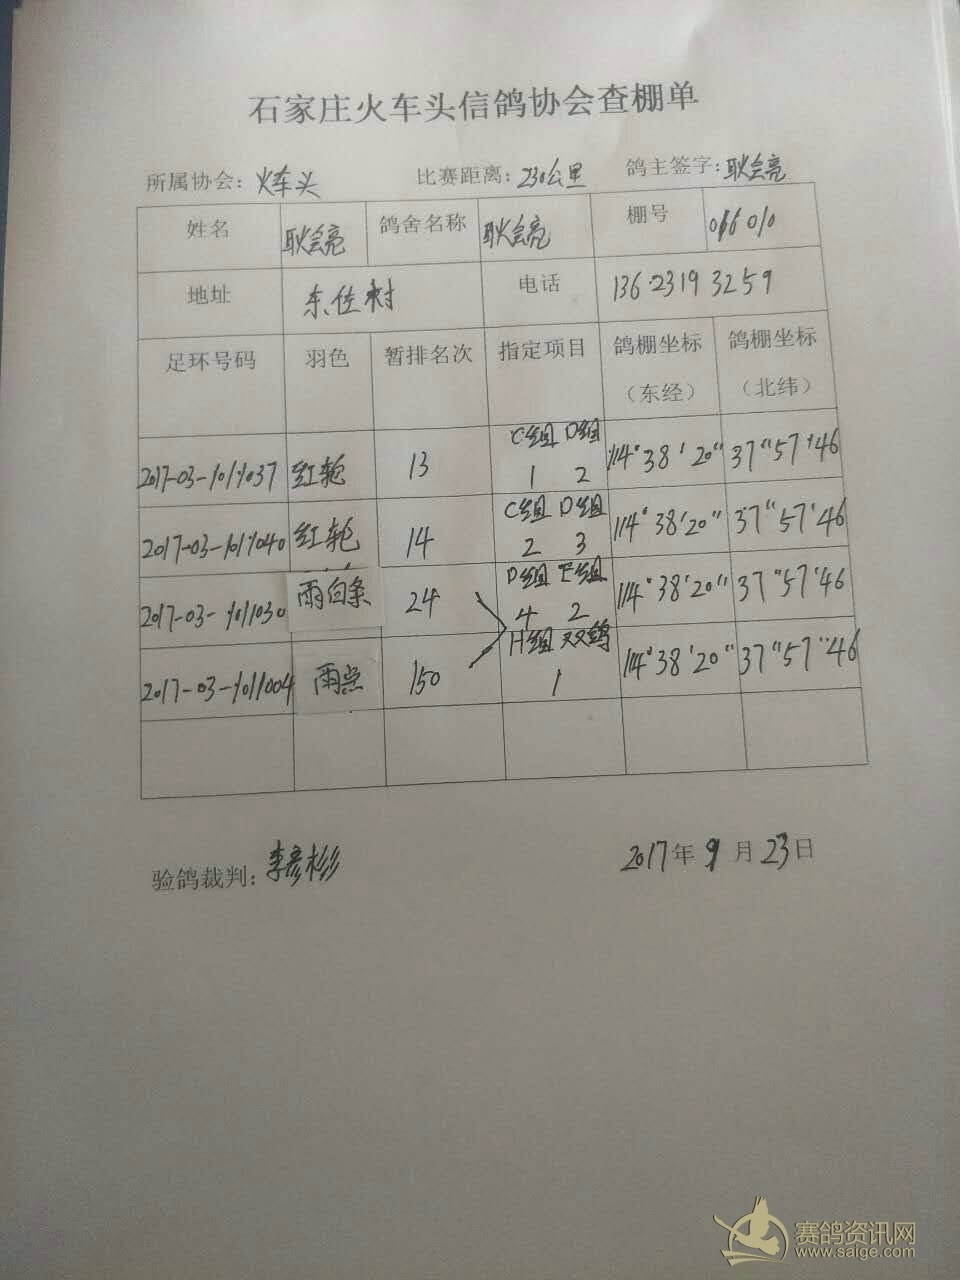 石家庄火车头信鸽协会查棚单
所属协会：火车头 比赛距离：230公里 鸽主签字：耿会亮
姓名 耿会亮 鸽舍名称 耿会亮 棚号 016010
地址 东佐村 电话 136 2319 3259
足环号码 羽色 暂排名次 指定项目 鸽棚坐标（东经） 鸽棚坐标（北纬）
C组 D组
2017-03-1011037 红轮 13 1 2 114°38′20″ 37″57′46
C组 D组
2017-03-1011040 红轮 14 2 3 114°38′20″ 37″57′46
D组 E组
2017-03-1011030 雨白条 24 4 2 114°38′20″ 37″57′46
H组 双鸽
2017-03-1011004 雨点 150 1 114°38′20″ 37″57″46
验鸽裁判：李彦彬 2017年9月23日
赛鸽资讯网
www.saige.com